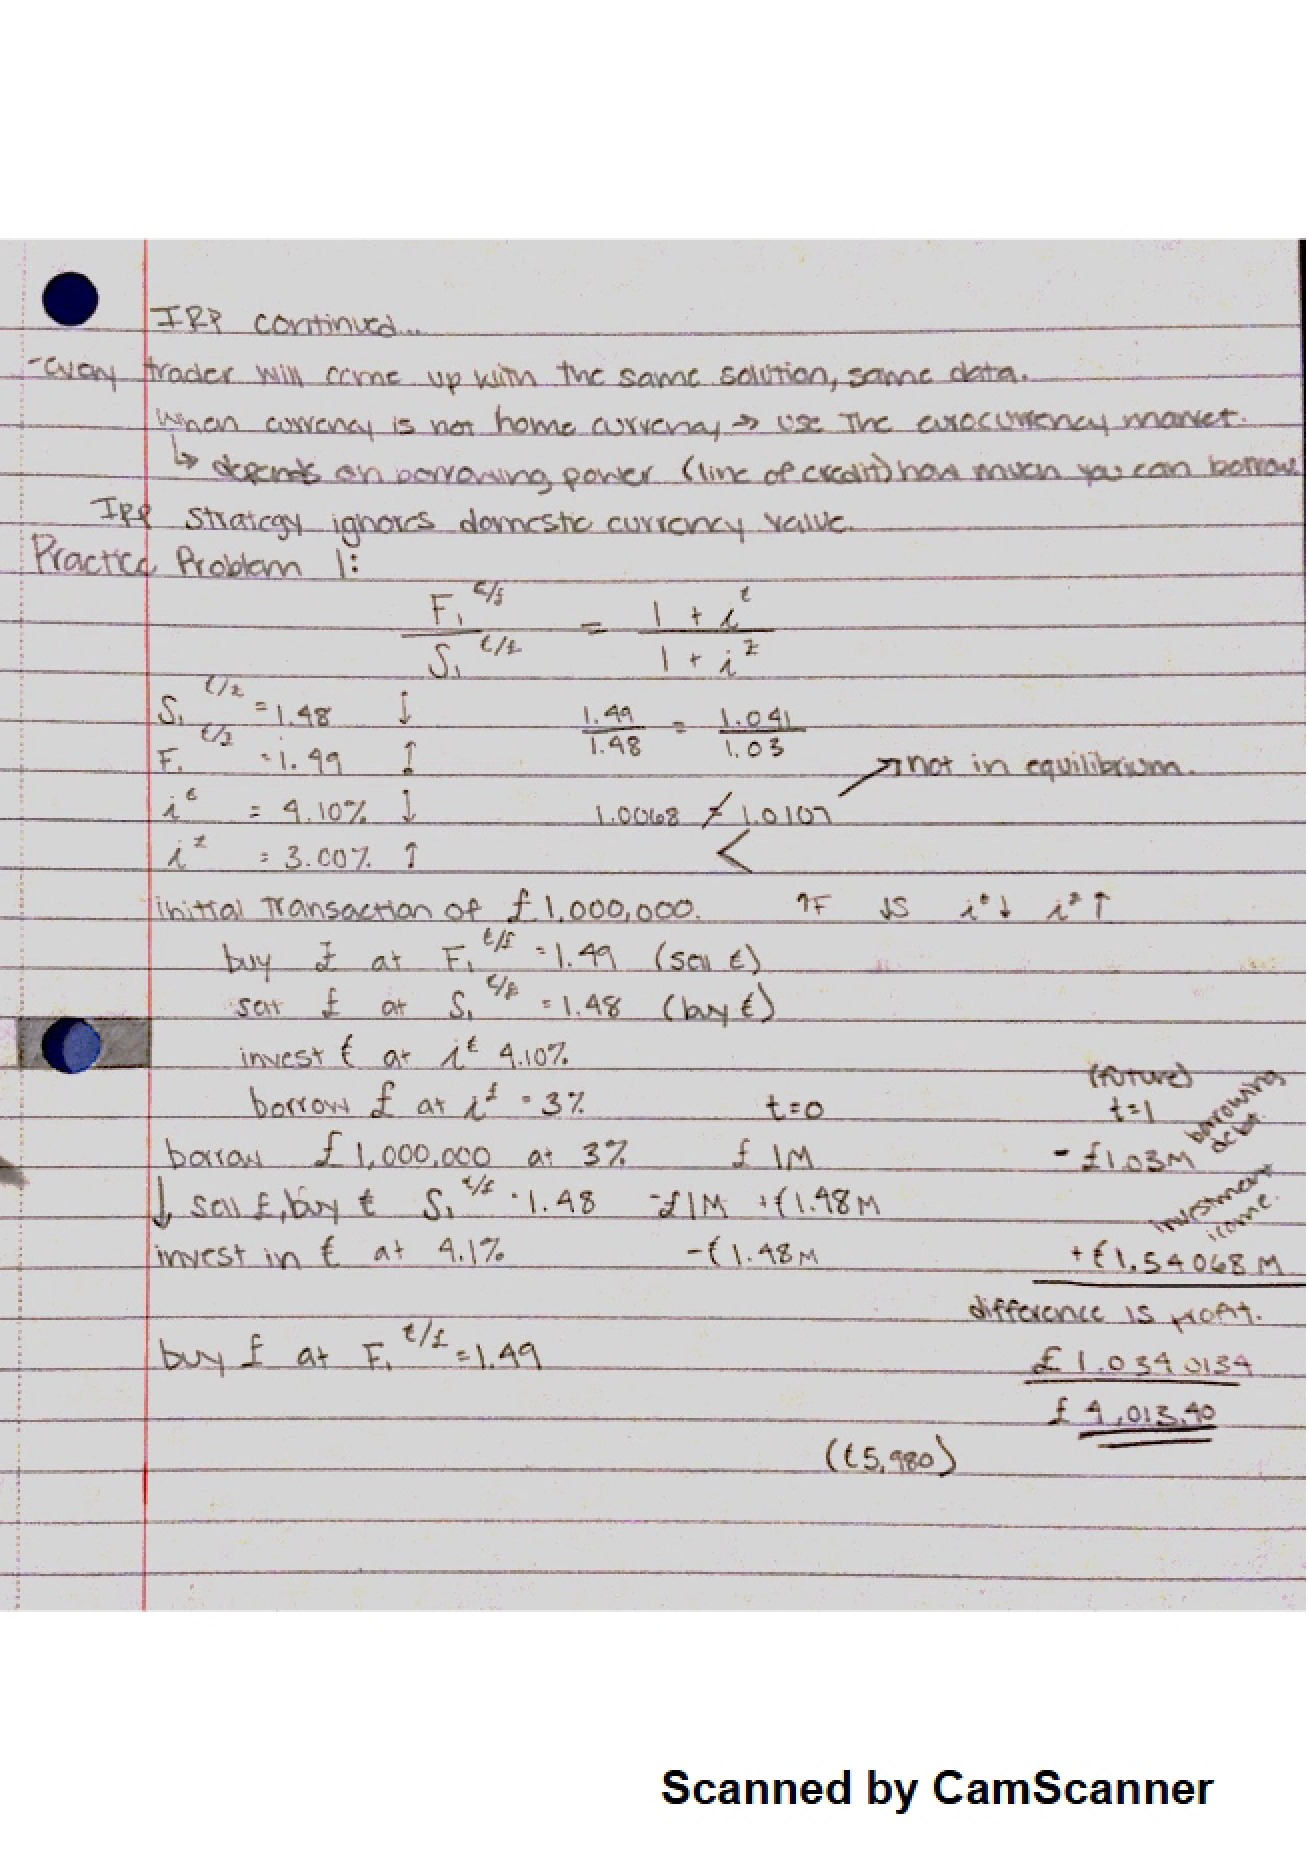 IRP continued...
-every trader will come up with the same solution, same data.
When currency is not home currency → use the eurocurrency market.
↳ depends on borrowing power (line of credit) how much you can borrow
IRP strategy ignores domestic currency value.
Practice Problem 1:
F₁^€/£ / S₁^€/£ = (1 + i^€) / (1 + i^£)
S₁^€/£ = 1.48 ↓ 1.49/1.48 = 1.041/1.03
F₁^€/£ = 1.49 ↑ → not in equilibrium.
i^€ = 4.10% ↓ 1.0068 ≠ 1.0107
i^£ = 3.00% ↑ <
initial transaction of £1,000,000. ↑F ↓S i^€↓ i^£↑
buy £ at F₁^€/£ = 1.49 (sell €)
sell £ at S₁^€/£ = 1.48 (buy €)
invest € at i^€ 4.10%
(future)
borrow £ at i^£ = 3% t=0 t=1
borrow £1,000,000 at 3% £1M -£1.03M borrowing debt.
↓ sell £, buy € S₁^€/£ = 1.48 -£1M +€1.48M
invest in € at 4.1% -€1.48M +€1.54068M investment income.
difference is profit.
buy £ at F₁^€/£ = 1.49 £1.0340134
£4,013.40
(€5,980)
Scanned by CamScanner